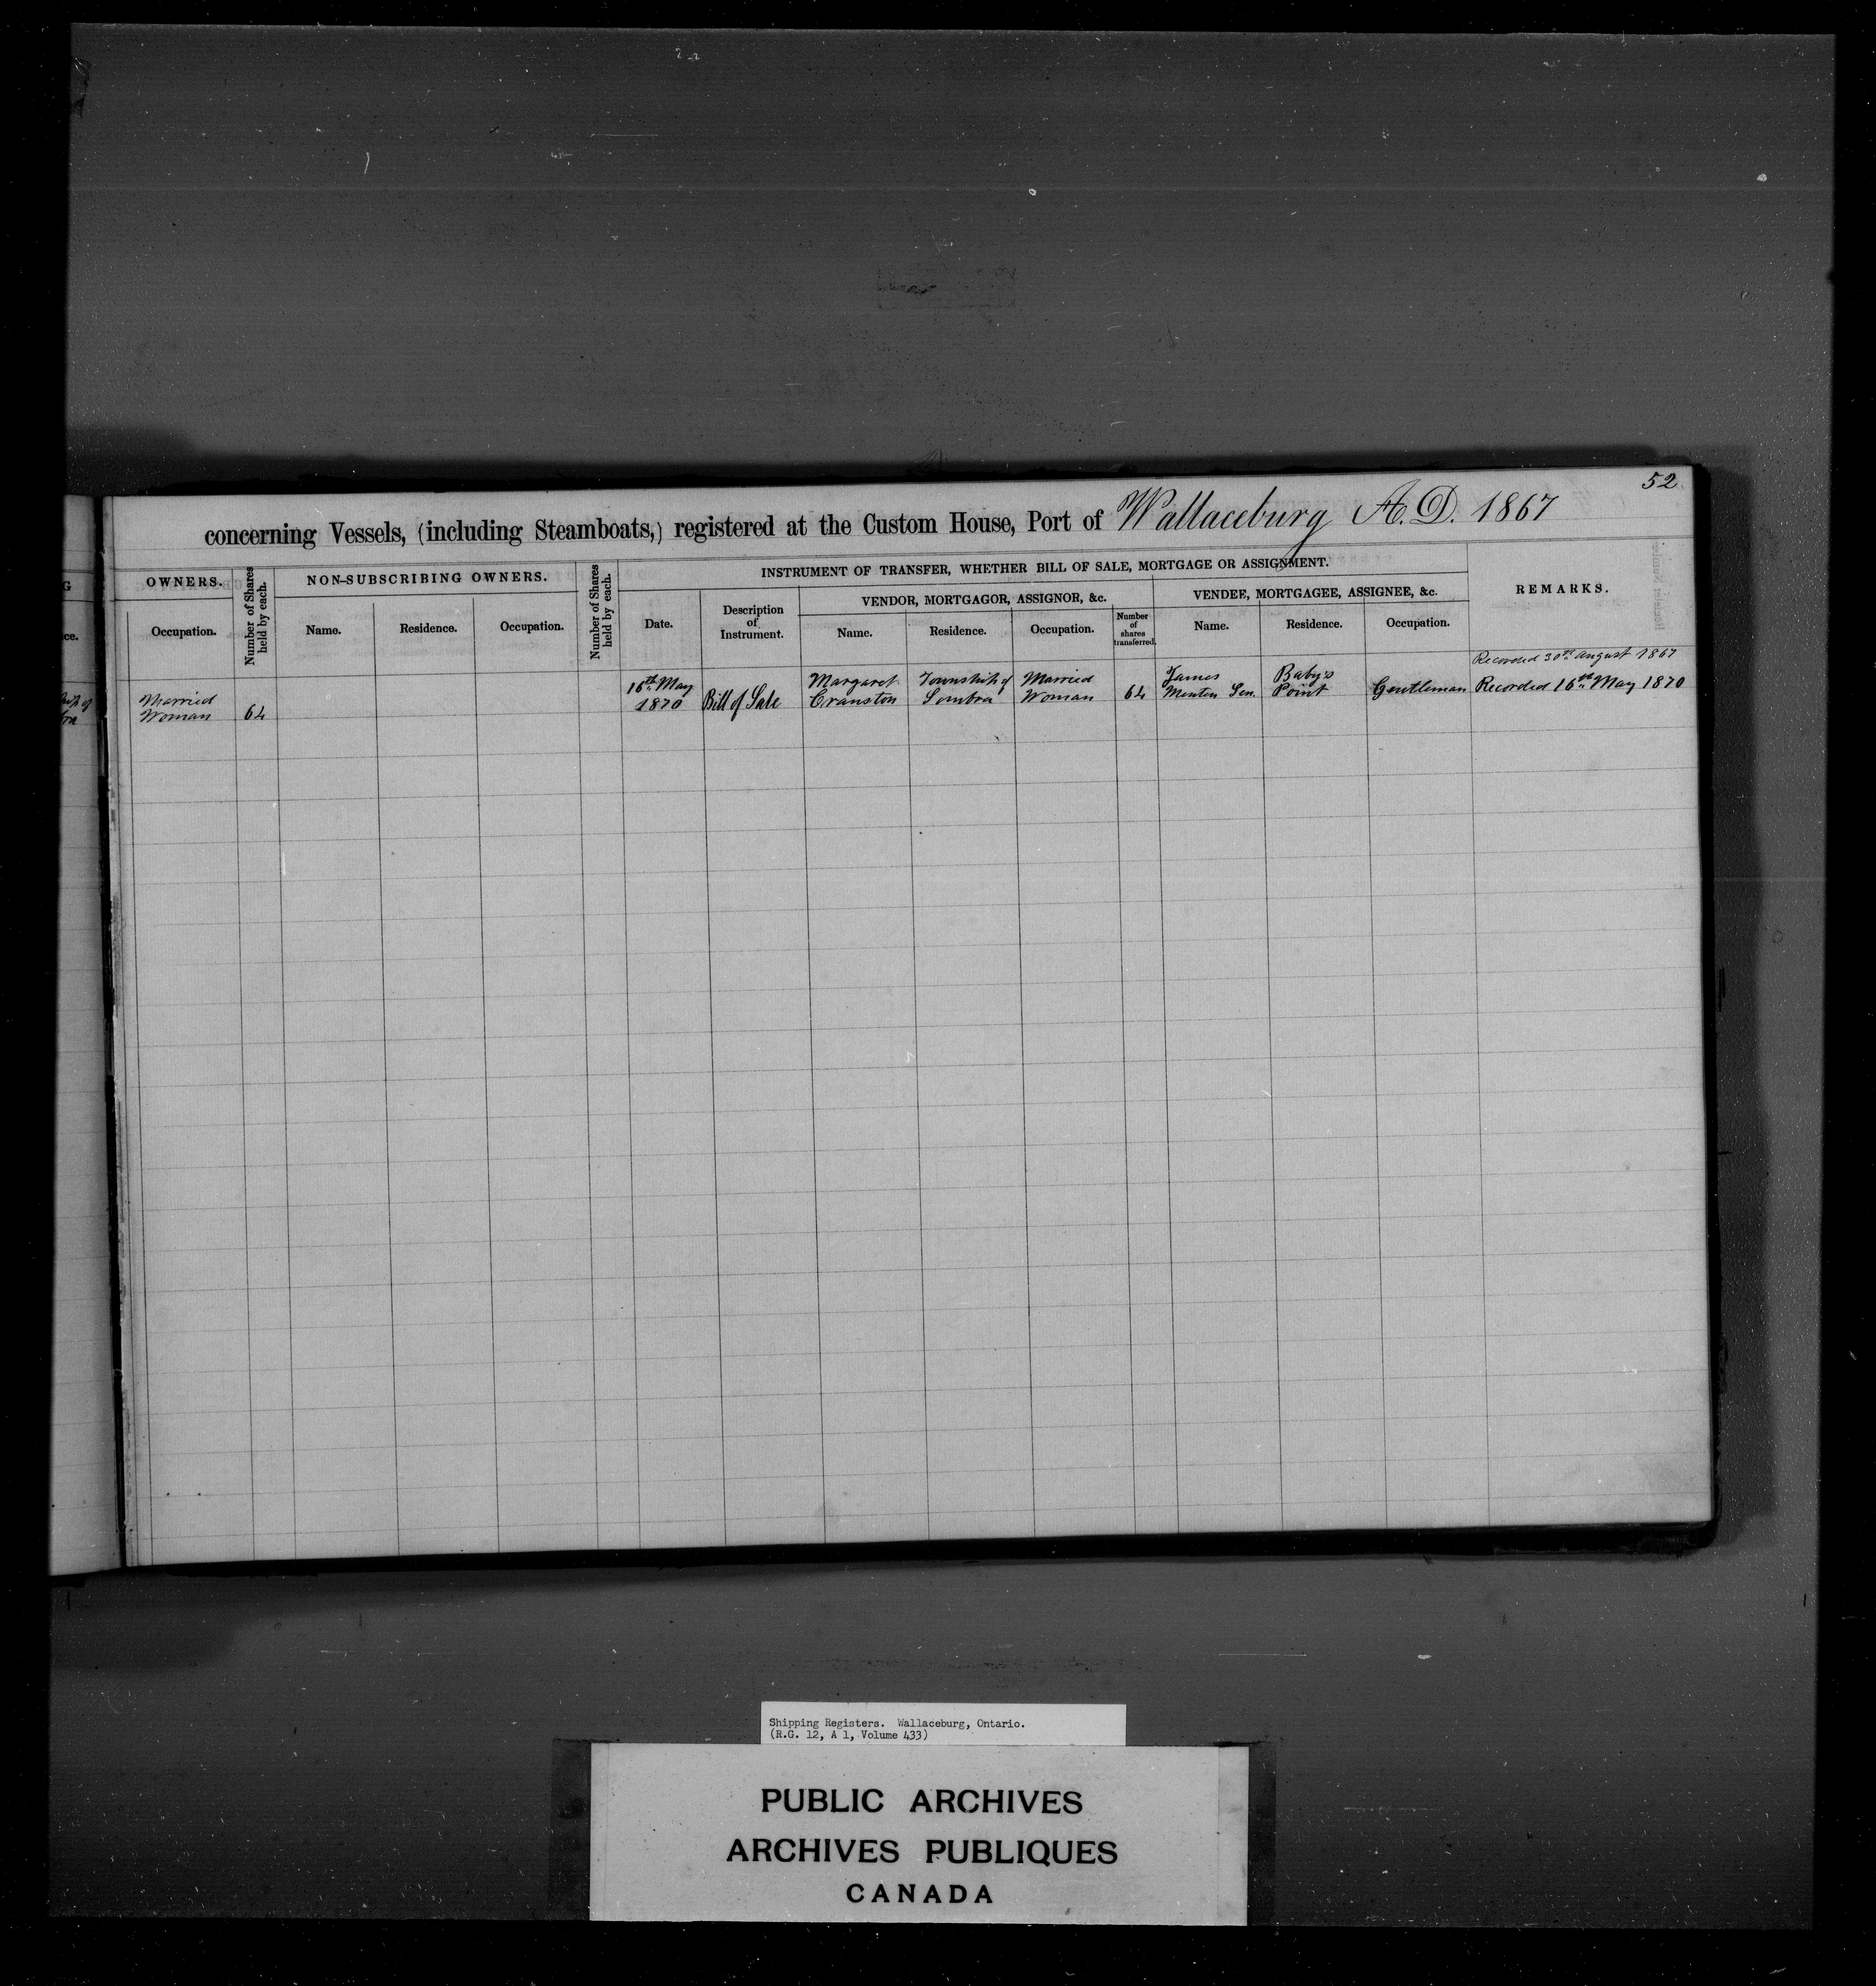 52
concerning Vessels, (including Steamboats,) registered at the Custom House, Port of Wallaceburg A.D. 1867
OWNERS.
Number of Shares held by each.
NON-SUBSCRIBING OWNERS.
Number of Shares held by each.
INSTRUMENT OF TRANSFER, WHETHER BILL OF SALE, MORTGAGE OR ASSIGNMENT.
REMARKS.
VENDOR, MORTGAGOR, ASSIGNOR, &c.
VENDEE, MORTGAGEE, ASSIGNEE, &c.
Occupation.
Name.
Residence.
Occupation.
Date.
Description of Instrument.
Name.
Residence.
Occupation.
Number of shares transferred.
Name.
Residence.
Occupation.
Recorded 30th August 1867
Married Woman
64
16th May 1870
Bill of Sale
Margaret Cranston
Township of Sombra
Married Woman
64
James Sen.
Baby's Point
Gentleman
Recorded 16th May 1870
Shipping Registers. Wallaceburg, Ontario.
(R.G. 12, A 1, Volume 433)
PUBLIC ARCHIVES
ARCHIVES PUBLIQUES
CANADA